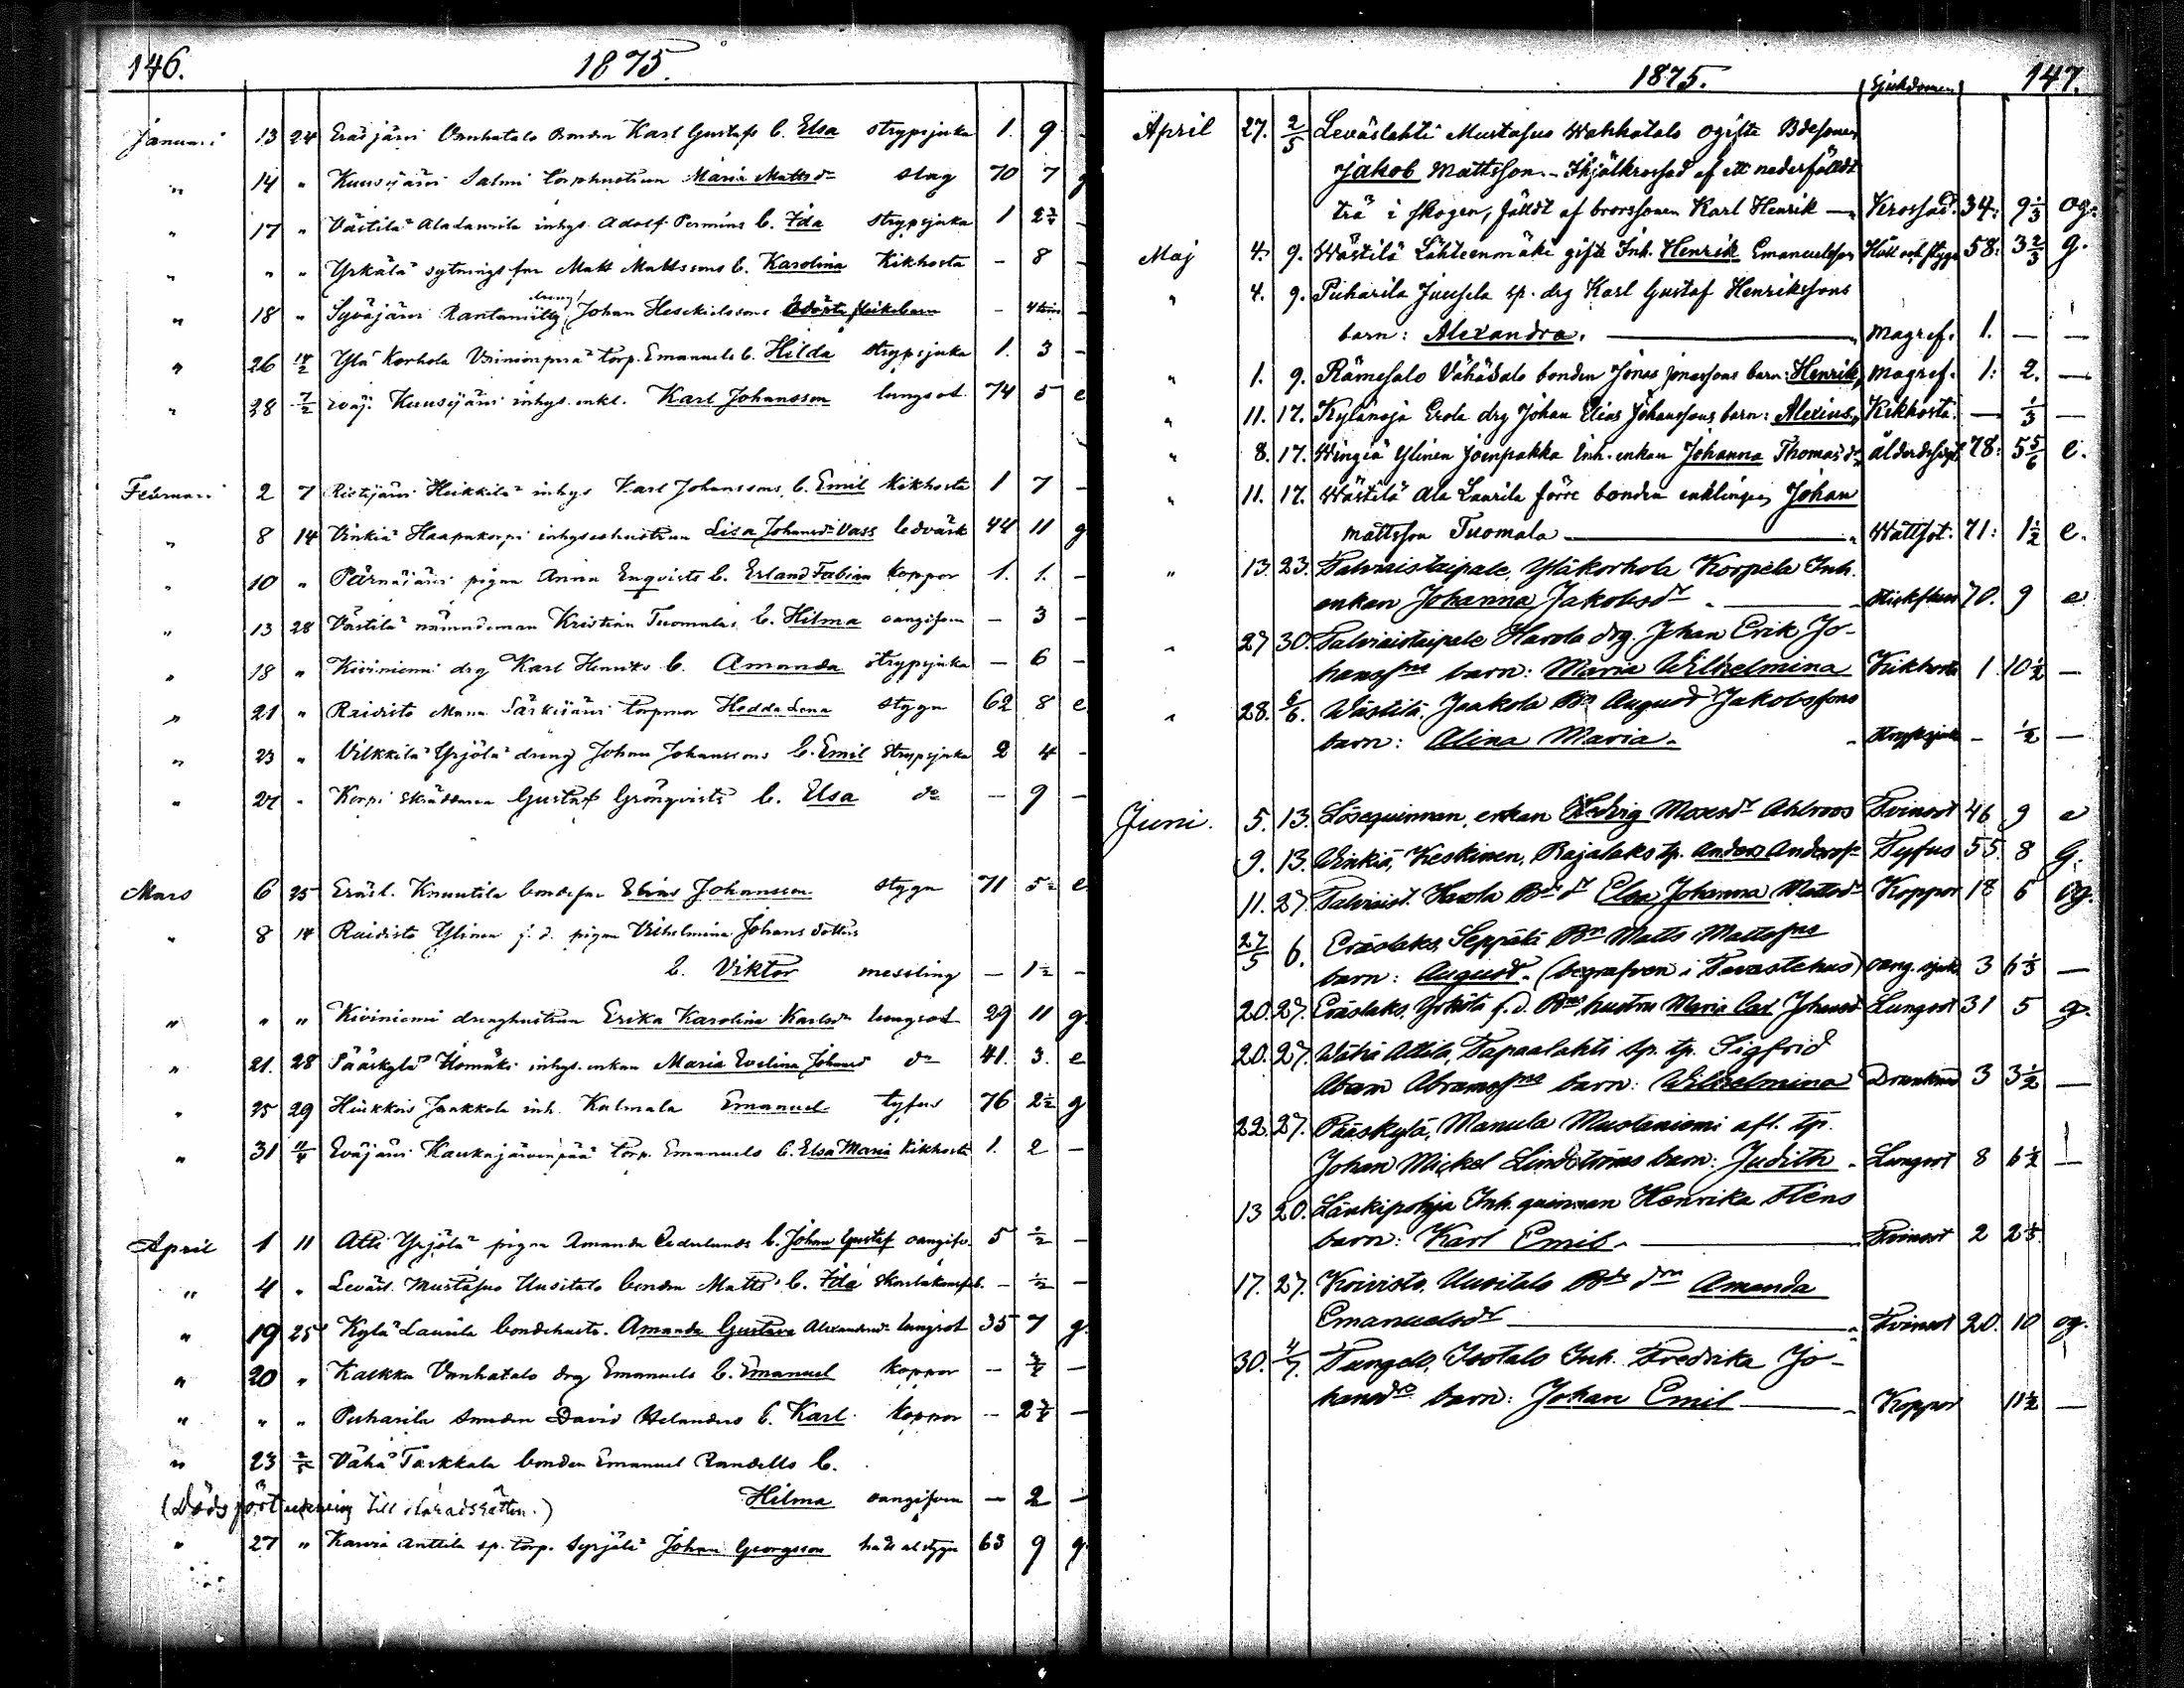 146. 1875.
Januari 13 24 Eräsjärvi Vanhatalo Bonden Karl Gustafs b. Elsa strypsjuka 1. 9 -
" 14 " Kuusijärvi Salmi torphustrun Maria Mattsdr slag 70 7 g
" 17 " Västilä Ala Laurila inhys. Adolf Permins b. Ida strypsjuka 1 2 3/4 -
" " " Yrkälä sytnings far Matt Mattssons b. Karolina Kikhosta - 8 -
dreng
" 18 " Syväjärvi Rantamölly Johan Hesekielssons flickebarn - 4 tim -
" 26 14/2 Ylä Korhola torp. Emanuels b. Hilda strypsjuka 1. 3 -
" 28 7/2 Kuusijärvi inhys. enkl. Karl Johansson lungsot 74 5 e
Februari 2 7 Ristijärvi Heikkilä inhys Karl Johanssons b. Emil Kikhosta 1 7 -
" 8 14 Vinkiä Haapakorpi inhyseshustrun Lisa Johansdr Vass ledvärk 44 11 g
" 10 " Pärnäjärvi pigan Anna Enqvists b. Erland Fabian koppor 1. 1. -
" 13 28 Västilä nämndeman Kristian Tuomalas b. Hilma oangifven - 3 -
" 18 " Kiviniemi drg Karl Henriks b. Amanda strypsjuka - 6 -
" 21 " Raidisto Manna Särkijärvi torpmor Hedda Lena stygn 62 8 e.
" 23 " Vilkkilä Yrjölä dreng Johan Johanssons b. Emil Strypsjuka 2 4 -
" 27 " Korpi skräddaren Gustaf Grönqvists b. Elsa do - 9 -
Mars 6 25 Eräsl. Knuutila bondefar Elias Johansson stygn 71 5 1/2 e
" 8 14 Raidisto Ylinen f. d. pigan Vilhelmina Johansdotters
b. Viktor messling - 1 1/2 -
" " " Kiviniemi drenghustrun Erika Karolina Karlsdr lungsot 29 11 g.
" 21. 28 Pääskylä Uomäki inhys. enkan Maria Evelina Johansd do 41. 3. e
" 25 29 Hirkkois Jaakkola inh. Kulmala Emanuel tyfus 76 2 1/2 g
" 31 11/4 Eväjärvi Kaukajärvenpää torp. Emanuels b. Elsa Maria Kikhosta 1. 2 -
April 1 11 Atti Yrjölä pigan Amanda Cederlunds b. Johan Gustaf oangifv. 5 1/2 -
" 4 " Leväsl. Mustajus Uusitalo bonden Matts b. Ida Skarlakansfeb. - 1/2 -
" 19 25 Kylä Laurila bondehustr. Amanda Gustava Alexandersdr lungsot 35 7 g.
" 20 " Kaukka Vanhatalo drg Emanuels b. Emanuel koppor - 3/4 -
" " " Puharila smeden David Helanders b. Karl koppor - 2 3/4 -
" 23 2/5 Vähä Taxkkala bonden Emanuel Randells b.
Hilma oangifven - 2 -
(Döds till Häradsrätten.)
" 27 " Karvia Anttila sp. torp. Syrjälä Johan Georgsson håll al stygn 63 9 g.
1875. Sjukdomen 147.
April 27. 2/5 Leväslahti Mustajus Wahhatalo ogifte Bdesonen
Jakob Mattsson. - Ihjälkrossad af ett nederfälldt
trä i skogen, fälldt af brorssonen Karl Henrik - Krossad. 34: 9 1/3 og.
Maj 4. 9. Wästilä Lähteenmäki gifte Inh. Henrik Emanuelsson Håll och stygn 58: 3 2/3 g.
" 4. 9. Puharila Juusela sp. drg Karl Gustaf Henrikssons
barn: Alexandra. - " Magref. 1. - -
" 1. 9. Rämesalo Vähäsalo bonden Jonas Jonassons barn: Henrik, Magref. 1: 2. -
" 11. 17. Kylänoja Erola drg Johan Elias Johanssons barn: Alexius, Kikhosta. - 1/3 -
" 8. 17. Wingiä Ylinen Joenpakka Inh. enkan Johanna Thomasdr ålderdomsvgt 78: 5 5/6 e.
" 11. 17. Wästilä Ala Laurila förre bonden enklingen, Johan
Mattsson Tuomala - " Wattsot. 71: 1 1/2 e.
" 13. 23. Talviaistaipale, Yläkorhola Korpela Inh.
enkan Johanna Jakobsdr - " 70. 9 e.
" 27 30. Talviaistaipale Harola drg. Johan Erik Jo-
hanssons barn: Maria Wilhelmina Kikhosta 1. 10 1/2 -
" 28. 6/6. Wästilä, Jaakola Bdn August Jakobssons
barn: Alina Maria. - " Strypsjuka - 1/2 -
Juni. 5. 13. Lösequinnan, enkan Hedvig Maxsdr Ahlroos Tvinsot 46 9 e
9. 13. Winkiä, Keskinen, Rajalaks tp. Anders Anderss. Tyfus 55. 8 g.
11. 27. Talviaist. Harola Bdr dr Elsa Johanna Mattsdr Koppor 18 6 og.
27/5 6. Eräslaks, Seppälä Bdn Matts Mattssons
barn: August. (begrafven i Tavastehus) oang. sjukd 3 6 1/3 -
20. 27. Eräslaks, Yrkölä f. d. Bdens hustru Maria Johansd Lungsot 31 5 g.
20. 27. Wähä Attila, Tapaalahti Sp. tp. Sigfrid
Abram Abramssons barn: Wilhelmina Drunknad 3 3 1/2 -
22. 27. Pääskylä, Manula Mustaniemi afl. tp.
Johan Mickel Lindströms barn: Judith - Lungsot 8 6 1/2 -
13 20. Länkipohja Inh. quinnan Henrika Sténs
barn: Karl Emil. - Tvinsot 2 2 1/3
17. 27. Koivisto, Uusitalo Bde drn Amanda
Emanuelsdr - " Tvinsot 20. 10 og.
30. 4/7. Tungelo, Isotalo Inh. Fredrika Jo-
hansdrs barn: Johan Emil - " Koppor 11 1/2 -